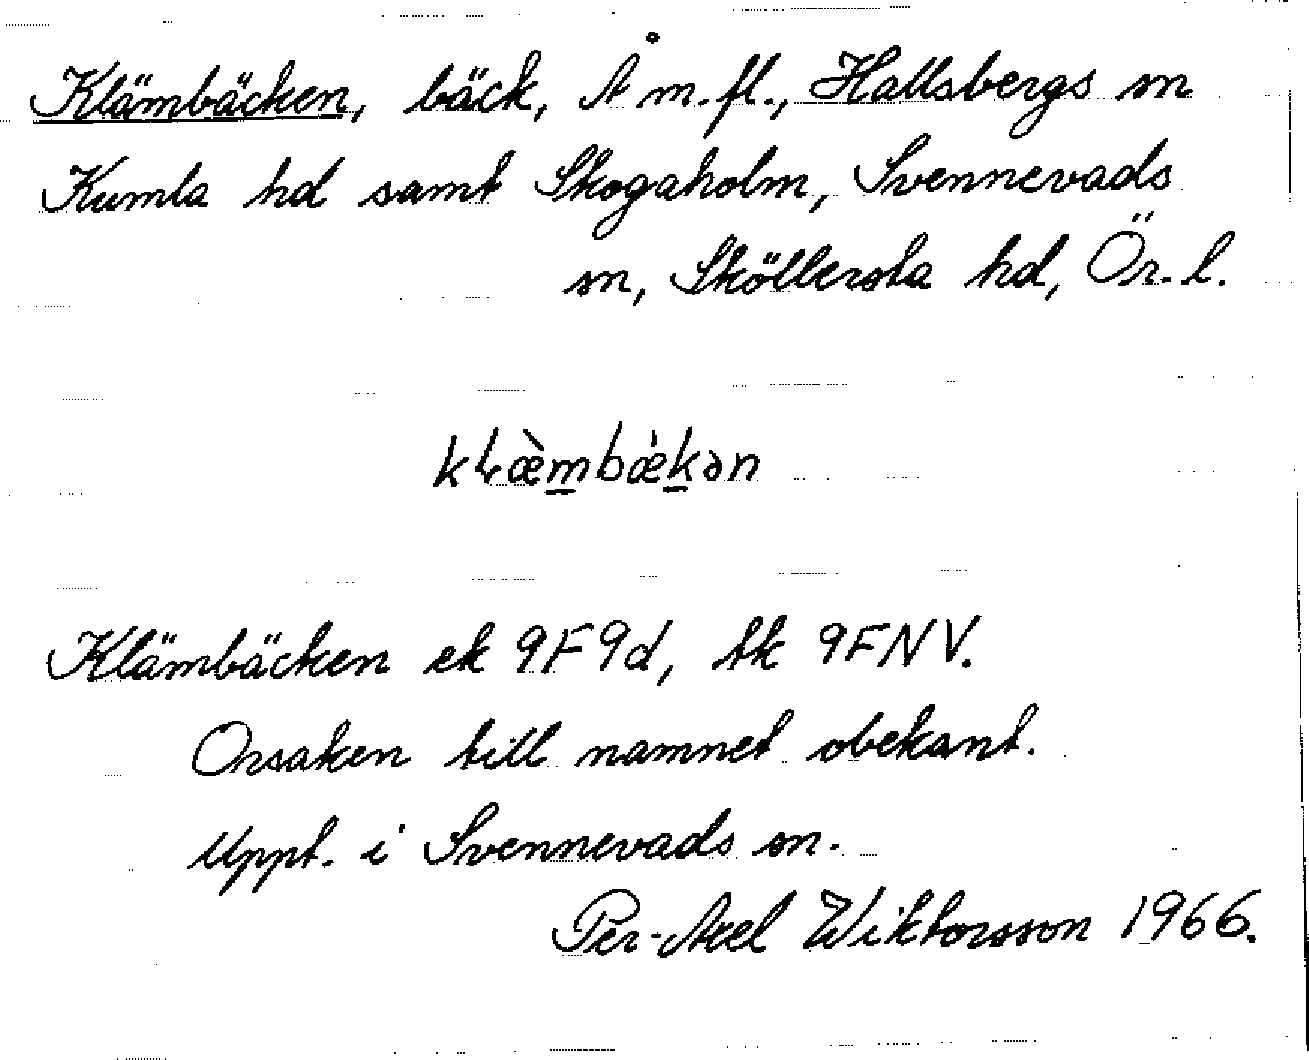 Klämbäcken, bäck, Å m. fl., Hallsbergs sn
Kumla hd samt Skogaholm, Svennevads
sn, Sköllersta hd, Ör. l.
kɫæ̀m̲bæ̀k̲ən
Klämbäcken ek 9F9d, tk 9FNV.
Orsaken till namnet obekant.
Uppt. i Svennevads sn.
Per-Axel Wiktorsson 1966.